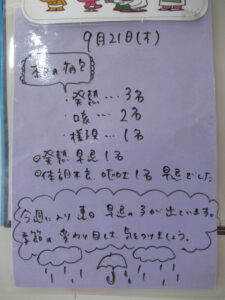 9月21日(木)
本日の病欠
・発熱…3名
・咳…2名
・様現…1名
◎発熱 早退1名
◎体調不良、嘔吐1名 早退でした
今週に入り 連日 早退の子が出ています。
季節の変わり目です。気をつけましょう。